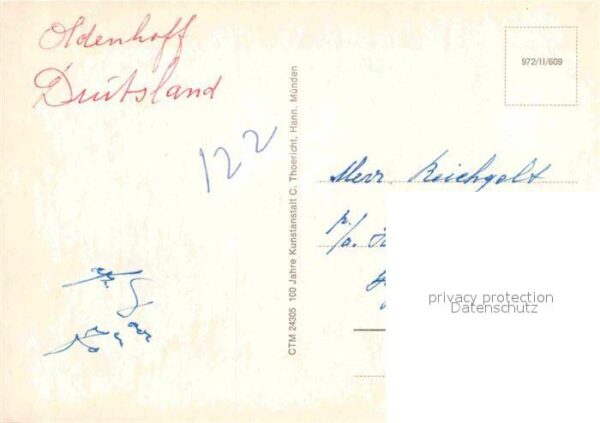 Oldenhoff
Duitsland
122
972/II/609
CTM 24305 100 Jahre Kunstanstalt C. Thoericht, Hann. Münden
Herr. Reichgelt
p/a.
privacy protection
Datenschutz